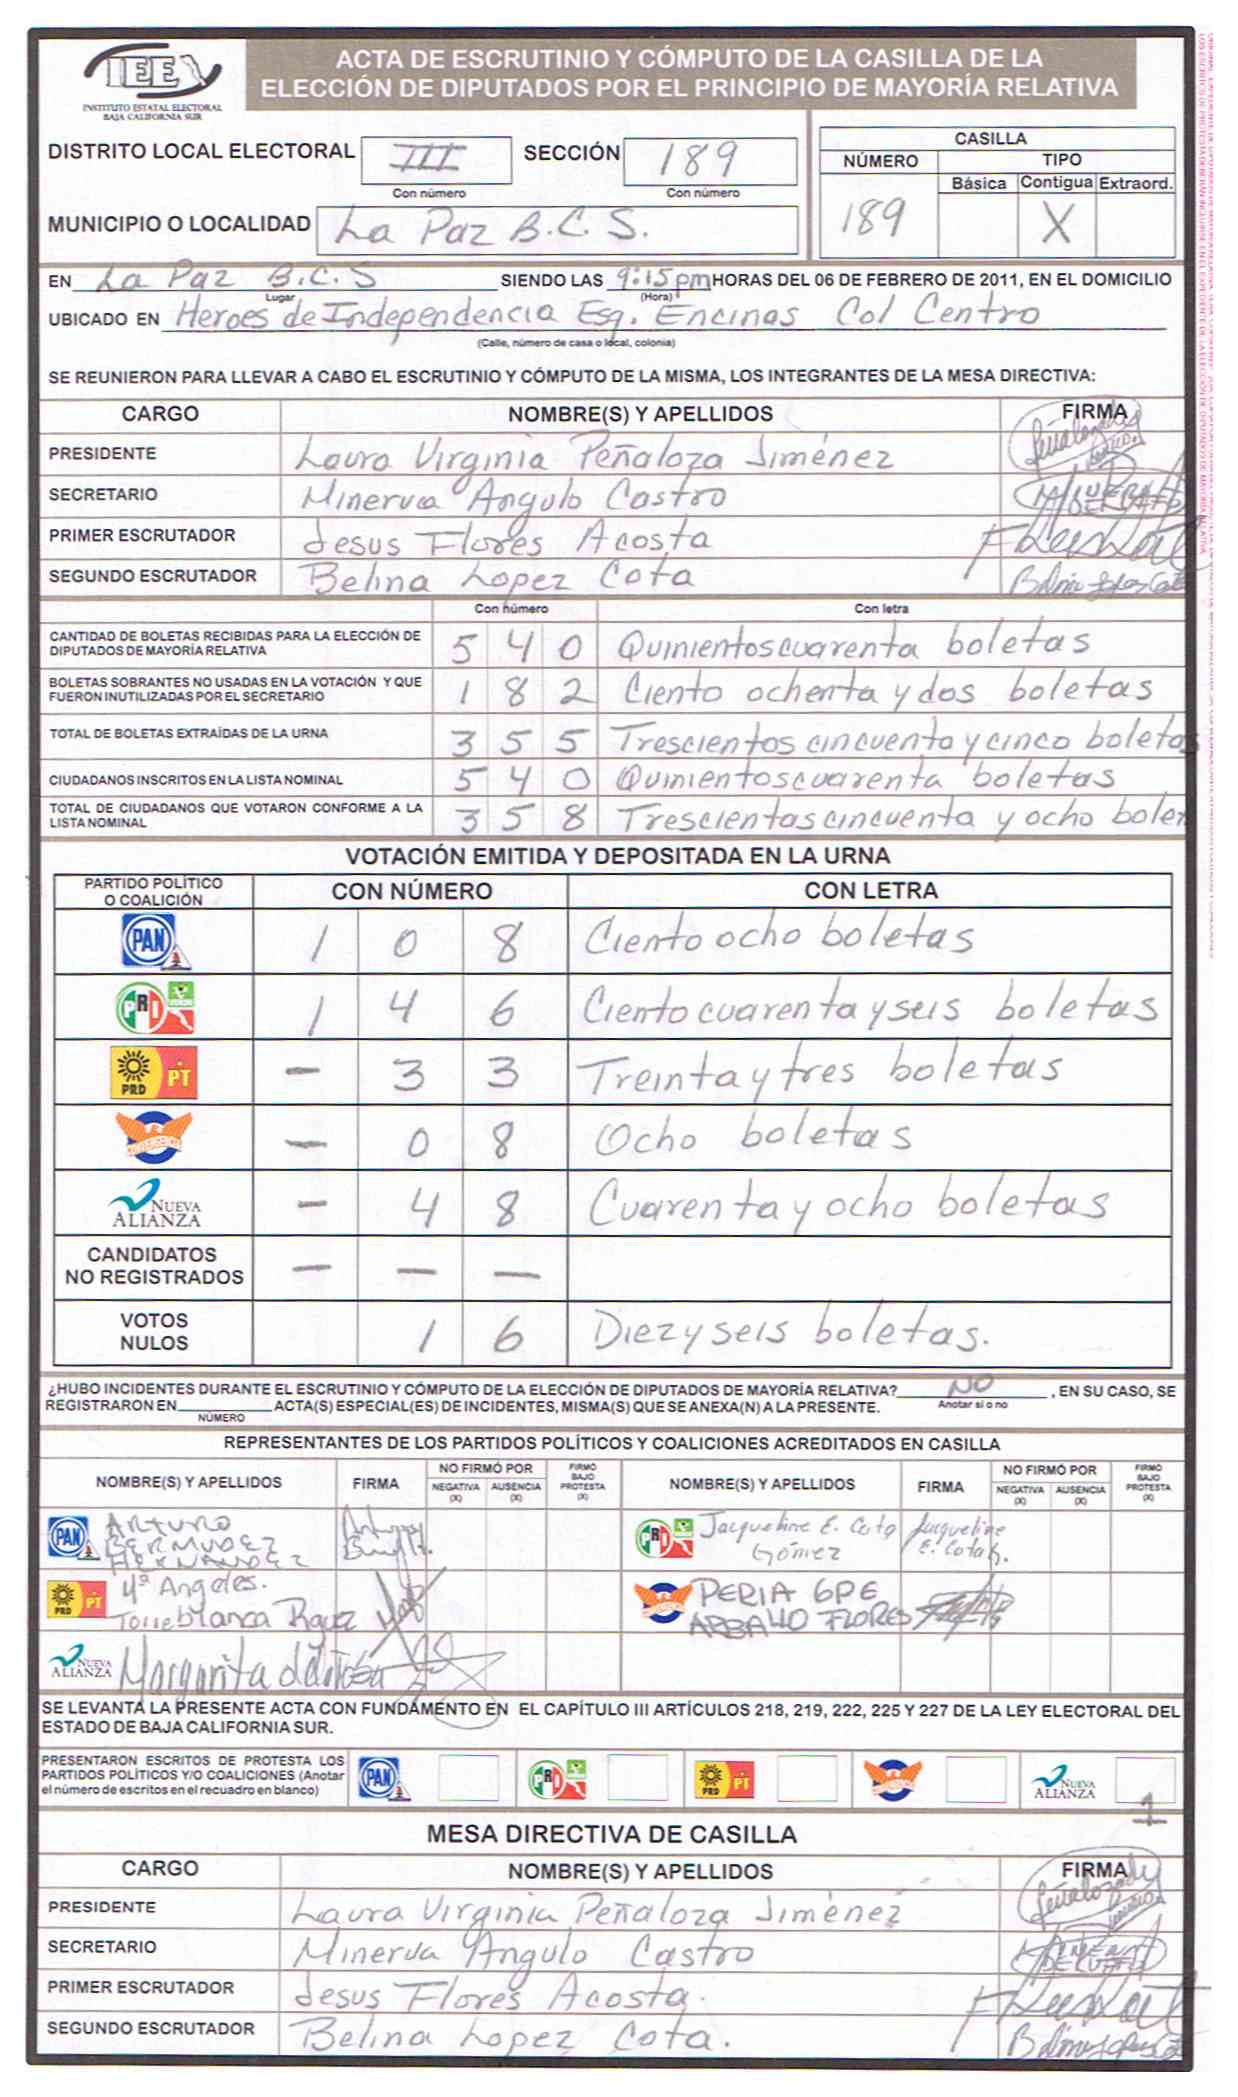 IEE
INSTITUTO ESTATAL ELECTORAL
BAJA CALIFORNIA SUR
ACTA DE ESCRUTINIO Y CÓMPUTO DE LA CASILLA DE LA
ELECCIÓN DE DIPUTADOS POR EL PRINCIPIO DE MAYORÍA RELATIVA
DISTRITO LOCAL ELECTORAL III SECCIÓN 189
Con número Con número
MUNICIPIO O LOCALIDAD La Paz B.C.S.
CASILLA
NÚMERO TIPO
Básica Contigua Extraord.
189 X
EN La Paz B.C.S SIENDO LAS 9:15 pm HORAS DEL 06 DE FEBRERO DE 2011, EN EL DOMICILIO
Lugar (Hora)
UBICADO EN Heroes de Independencia Esq. Encinas Col Centro
(Calle, número de casa o local, colonia)
SE REUNIERON PARA LLEVAR A CABO EL ESCRUTINIO Y CÓMPUTO DE LA MISMA, LOS INTEGRANTES DE LA MESA DIRECTIVA:
CARGO NOMBRE(S) Y APELLIDOS FIRMA
PRESIDENTE Laura Virginia Peñaloza Jiménez
SECRETARIO Minerva Angulo Castro
PRIMER ESCRUTADOR Jesus Flores Acosta
SEGUNDO ESCRUTADOR Belina Lopez Cota
Con número Con letra
CANTIDAD DE BOLETAS RECIBIDAS PARA LA ELECCIÓN DE
DIPUTADOS DE MAYORÍA RELATIVA 5 4 0 Quinientos cuarenta boletas
BOLETAS SOBRANTES NO USADAS EN LA VOTACIÓN Y QUE
FUERON INUTILIZADAS POR EL SECRETARIO 1 8 2 Ciento ochenta y dos boletas
TOTAL DE BOLETAS EXTRAÍDAS DE LA URNA 3 5 5 Trescientos cincuenta y cinco boletas
CIUDADANOS INSCRITOS EN LA LISTA NOMINAL 5 4 0 Quinientos cuarenta boletas
TOTAL DE CIUDADANOS QUE VOTARON CONFORME A LA
LISTA NOMINAL 3 5 8 Trescientas cincuenta y ocho bolet
VOTACIÓN EMITIDA Y DEPOSITADA EN LA URNA
PARTIDO POLÍTICO
O COALICIÓN CON NÚMERO CON LETRA
PAN 1 0 8 Ciento ocho boletas
PRI VERDE 1 4 6 Ciento cuarenta y seis boletas
PRD PT - 3 3 Treinta y tres boletas
CONVERGENCIA - 0 8 Ocho boletas
NUEVA ALIANZA - 4 8 Cuarenta y ocho boletas
CANDIDATOS
NO REGISTRADOS - - -
VOTOS
NULOS 1 6 Diez y seis boletas.
¿HUBO INCIDENTES DURANTE EL ESCRUTINIO Y CÓMPUTO DE LA ELECCIÓN DE DIPUTADOS DE MAYORÍA RELATIVA? NO , EN SU CASO, SE
Anotar si o no
REGISTRARON EN ACTA(S) ESPECIAL(ES) DE INCIDENTES, MISMA(S) QUE SE ANEXA(N) A LA PRESENTE.
NÚMERO
REPRESENTANTES DE LOS PARTIDOS POLÍTICOS Y COALICIONES ACREDITADOS EN CASILLA
NOMBRE(S) Y APELLIDOS FIRMA NO FIRMÓ POR NEGATIVA (X) AUSENCIA (X) FIRMÓ BAJO PROTESTA (X) NOMBRE(S) Y APELLIDOS FIRMA NO FIRMÓ POR NEGATIVA (X) AUSENCIA (X) FIRMÓ BAJO PROTESTA (X)
PAN ARTURO
BERMUDEZ
HERNANDEZ
PRI Jacqueline E. Cota
Gómez
Jacqueline
E. Cota G.
PRD PT Mª Angeles.
Torreblanca
CONVERGENCIA GPE
FLORES
NUEVA ALIANZA Margarita
SE LEVANTA LA PRESENTE ACTA CON FUNDAMENTO EN EL CAPÍTULO III ARTÍCULOS 218, 219, 222, 225 Y 227 DE LA LEY ELECTORAL DEL
ESTADO DE BAJA CALIFORNIA SUR.
PRESENTARON ESCRITOS DE PROTESTA LOS
PARTIDOS POLÍTICOS Y/O COALICIONES (Anotar
el número de escritos en el recuadro en blanco)
PAN PRI PRD PT CONVERGENCIA NUEVA ALIANZA 1
MESA DIRECTIVA DE CASILLA
CARGO NOMBRE(S) Y APELLIDOS FIRMA
PRESIDENTE Laura Virginia Peñaloza Jiménez
SECRETARIO Minerva Angulo Castro
PRIMER ESCRUTADOR Jesus Flores Acosta.
SEGUNDO ESCRUTADOR Belina Lopez Cota.